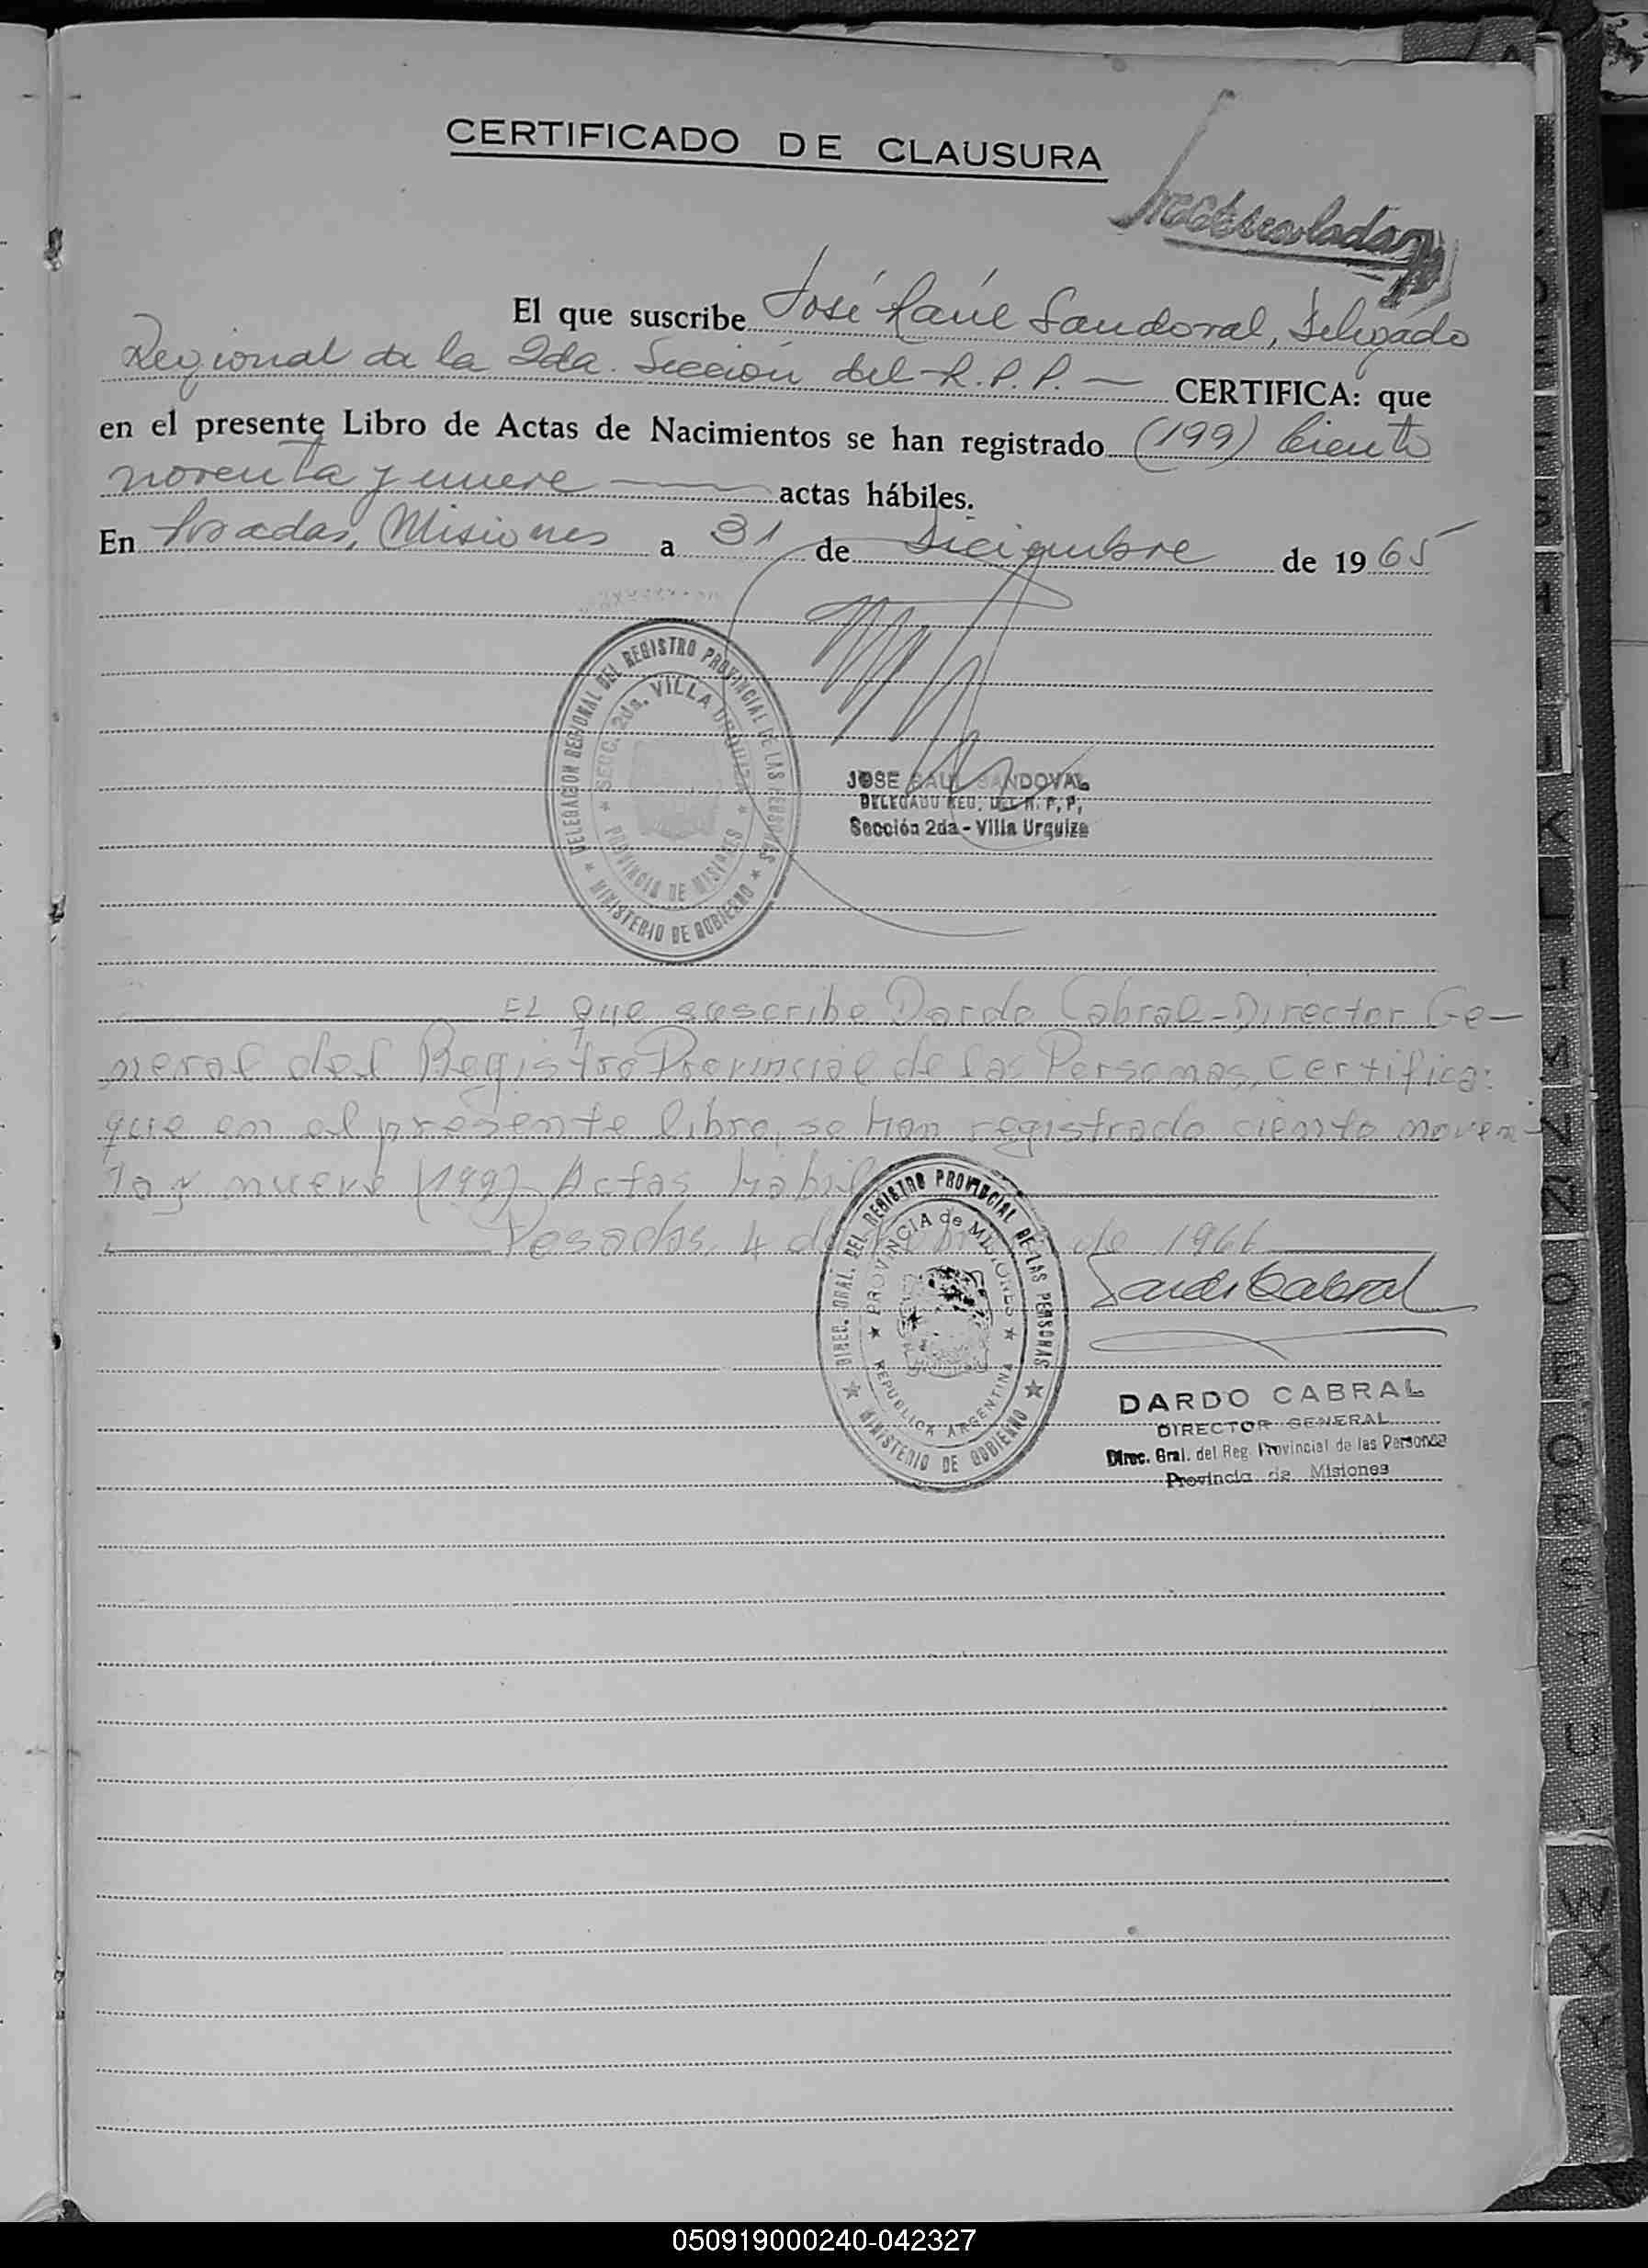 CERTIFICADO DE CLAUSURA
El que suscribe José Raúl Sandoval, Delegado
Regional de la 2da. Sección del R.P.P. — CERTIFICA: que
en el presente Libro de Actas de Nacimientos se han registrado (199) Ciento
noventa y nueve — actas hábiles.
En Posadas, Misiones a 31 de diciembre de 1965
DELEGACION REGIONAL DEL REGISTRO PROVINCIAL DE LAS PERSONAS
SECC. 2da. VILLA URQUIZA
PROVINCIA DE MISIONES
MINISTERIO DE GOBIERNO
JOSE RAUL SANDOVAL
DELEGADO REG. DEL R. P. P.
Sección 2da - Villa Urquiza
El que suscribe Dardo Cabral - Director Ge-
neral del Registro Provincial de las Personas, certifica:
que en el presente libro, se han registrado ciento noven-
ta y nueve (199) Actas hábil
Posadas, 4 de de 1966
Dardo Cabral
DIREC. GRAL. DEL REGISTRO PROVINCIAL DE LAS PERSONAS
PROVINCIA de MISIONES
REPUBLICA ARGENTINA
MINISTERIO DE GOBIERNO
DARDO CABRAL
DIRECTOR GENERAL
Direc. Gral. del Reg. Provincial de las Personas
Provincia de Misiones
K
L
N
O
Q
R
S
U
W
X
Y
Z
050919000240-042327